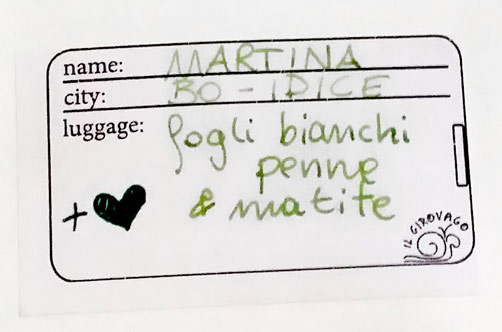 name: MARTINA
city: BO - IDICE
luggage: fogli bianchi
penne
+ & matite
IL GIROVAGO